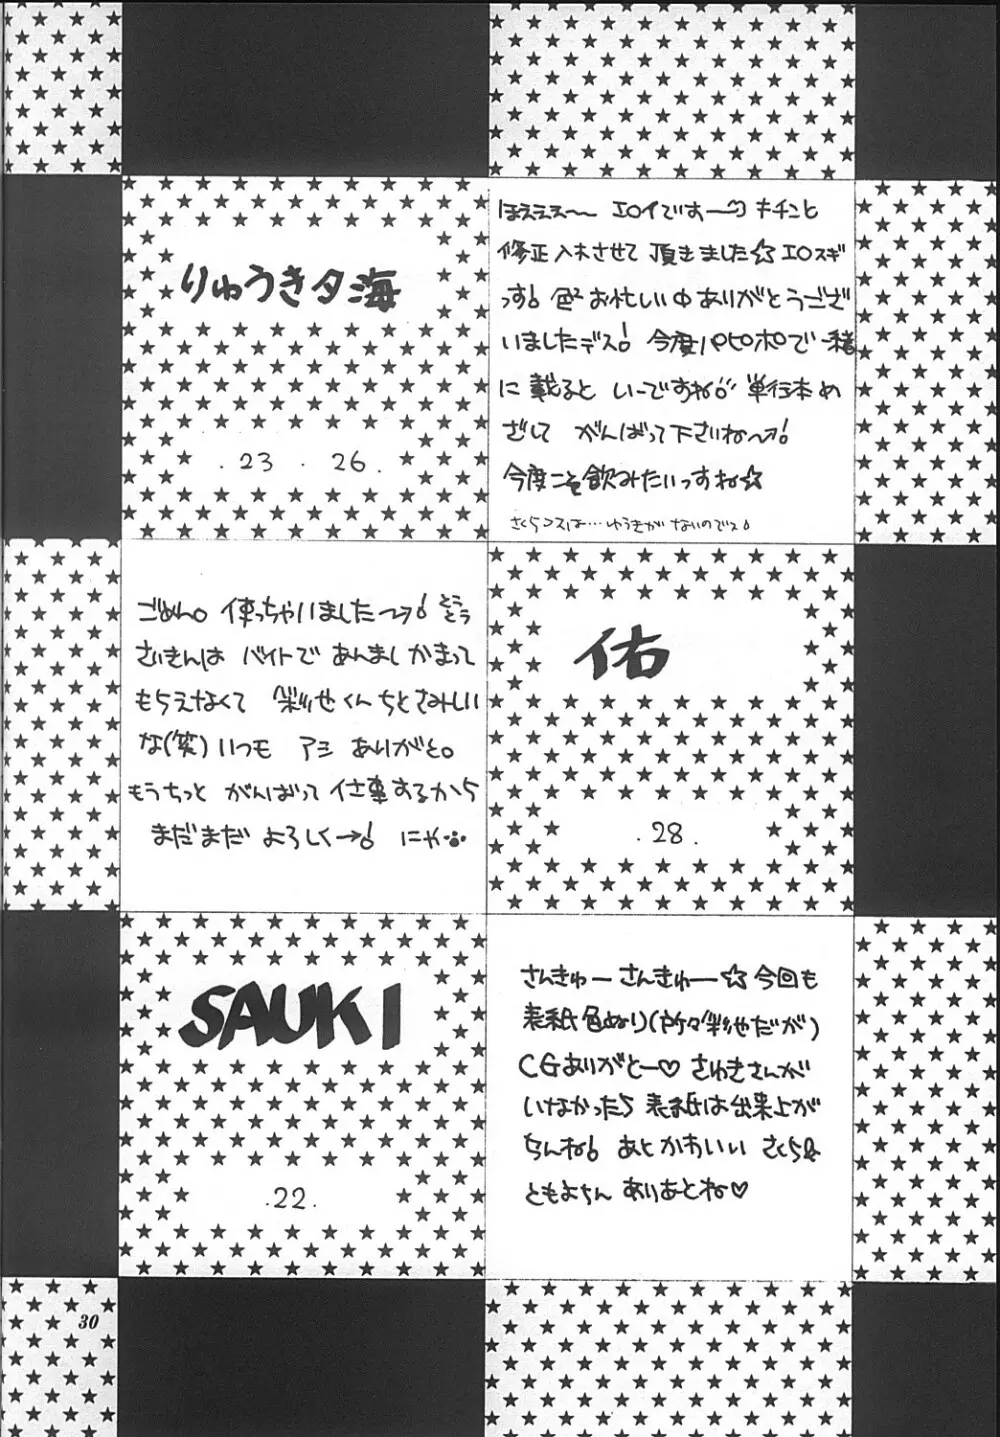 りゅうき夕海
.23 . 26.
ほええぇ〜 エロイですー♡ キチンと
修正入れさせて 頂きました☆エロスギ
っす! 色々お忙しい中ありがとうござ
いましたデス! 今度パピポで一緒
に載るといーですねぇ 単行本め
ざして がんばって下さいね〜!
今度こそ飲みたいっすね☆
さくらコスは…ゆうきがないのでス!
ごめん。使っちゃいました〜!
さいきんは バイトで あんまし かまって
もらえなくて 彩世くんちとさみしい
な(笑) いつも アシ ありがと。
もうちっと がんばって 仕事するから
まだまだ よろしく→! にゃ
佑
.28.
SAUKI
.22.
さんきゅー さんきゅー☆ 今回も
表紙色ぬり(所々彩世だが)
CGありがとー♡ さゆきさんが
いなかったら 表紙は出来上が
らんね! あと かわいい さくら&
ともよちん ありあとね♡
30